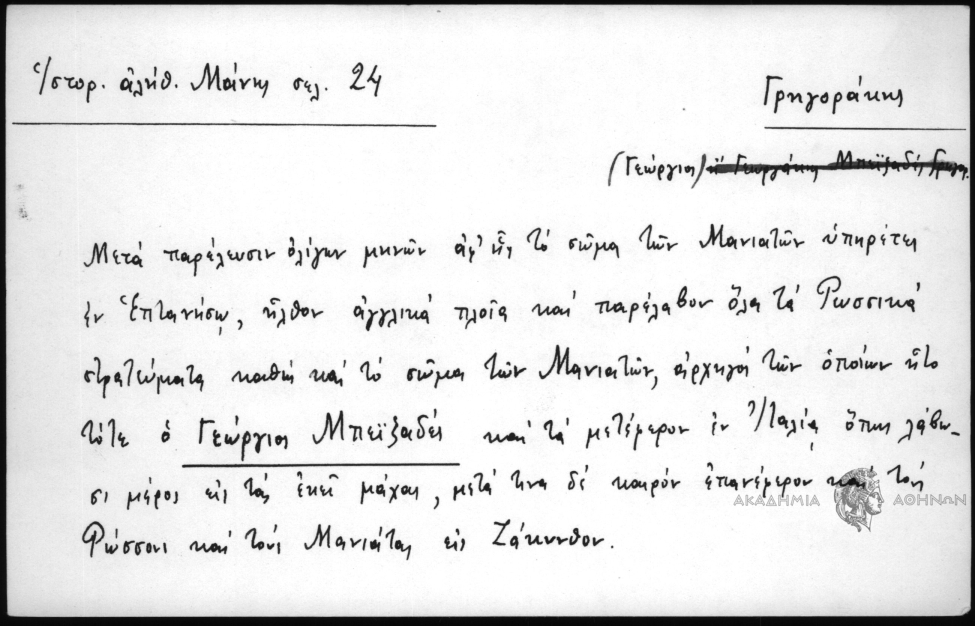 Ἱστορ. ἀλήθ. Μάνης σελ. 24
Γρηγοράκης
(Γεώργιος) ἤ Γεωργάκης Μπεϊζαδές Γρηγορ.
Μετά παρέλευσιν ὀλίγων μηνῶν ἀφ' ἧς τό σῶμα τῶν Μανιατῶν ὑπηρέτει
ἐν Ἑπτανήσῳ, ἦλθον ἀγγλικά πλοῖα καί παρέλαβον ὅλα τά Ρωσσικά
στρατεύματα καθώς καί τό σῶμα τῶν Μανιατῶν, ἀρχηγός τῶν ὁποίων ἦτο
τότε ὁ Γεώργιος Μπεϊζαδές καί τά μετέφερον ἐν Ἰταλίᾳ ὅπως λάβω-
σι μέρος εἰς τάς ἐκεῖ μάχας, μετά τινα δέ καιρόν ἐπανέφερον καί τούς
Ρώσσους καί τούς Μανιάτας εἰς Ζάκυνθον.
ΑΚΑΔΗΜΙΑ ΑΘΗΝΩΝ